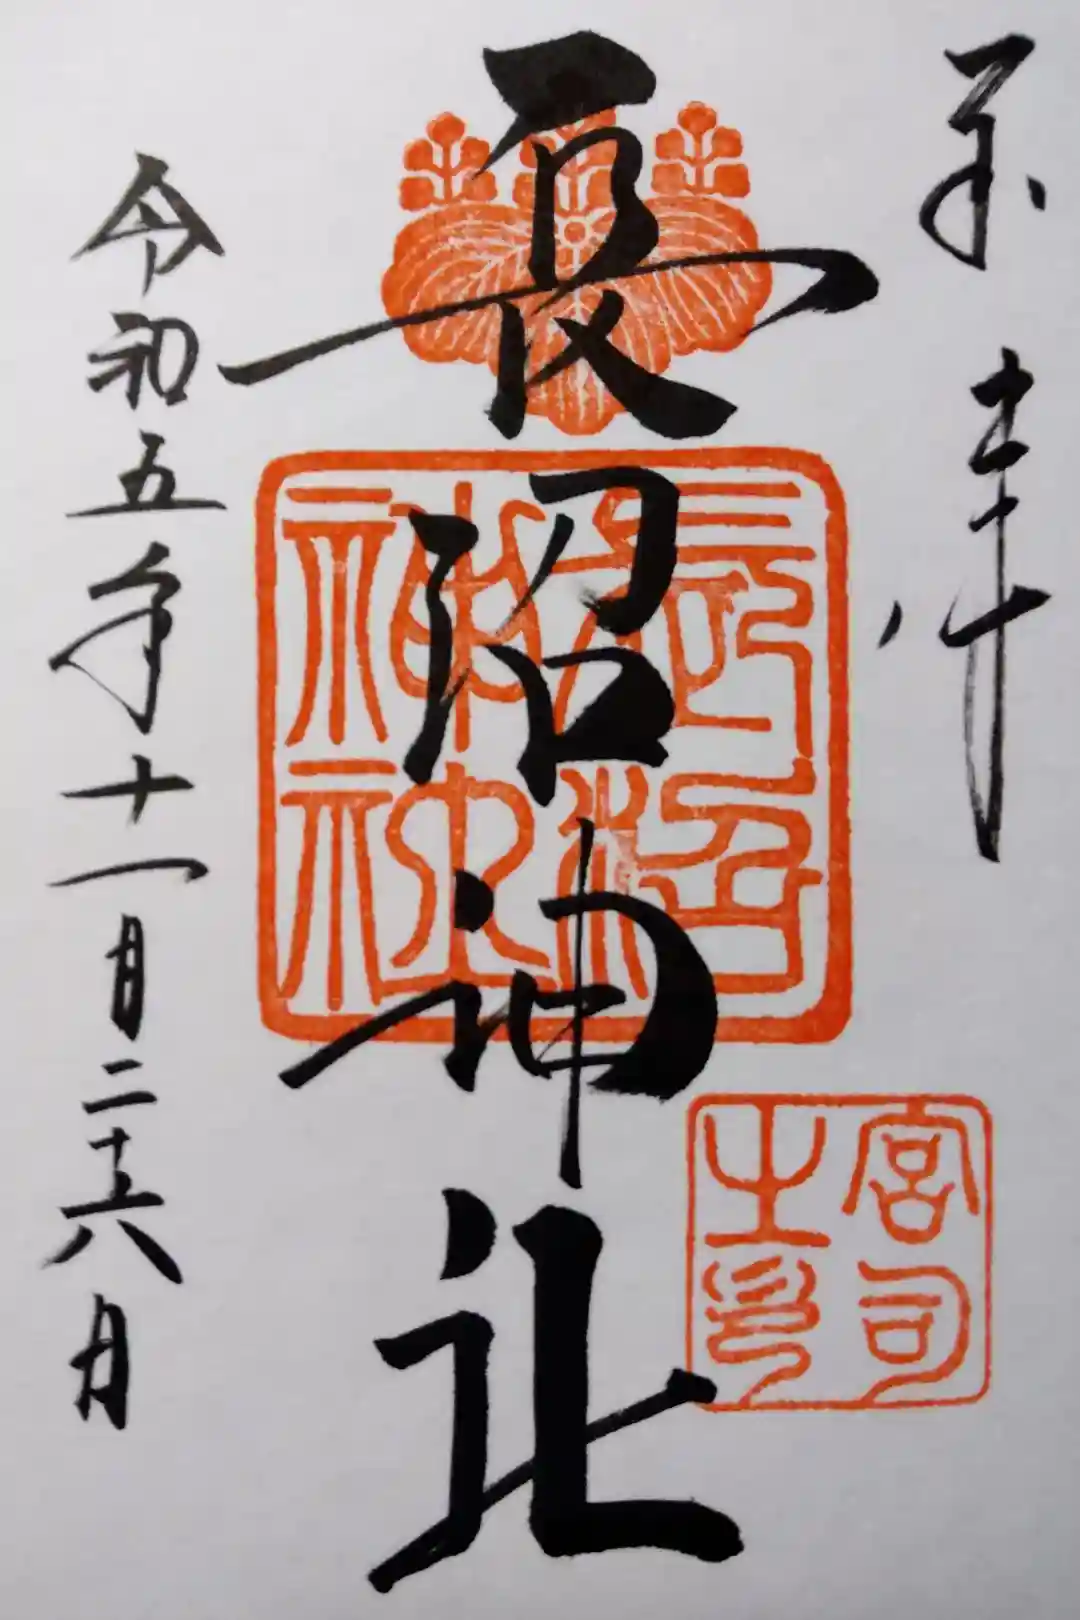 長沼神社
長沼
神社
宮司
之印
令和五年十一月二十六日